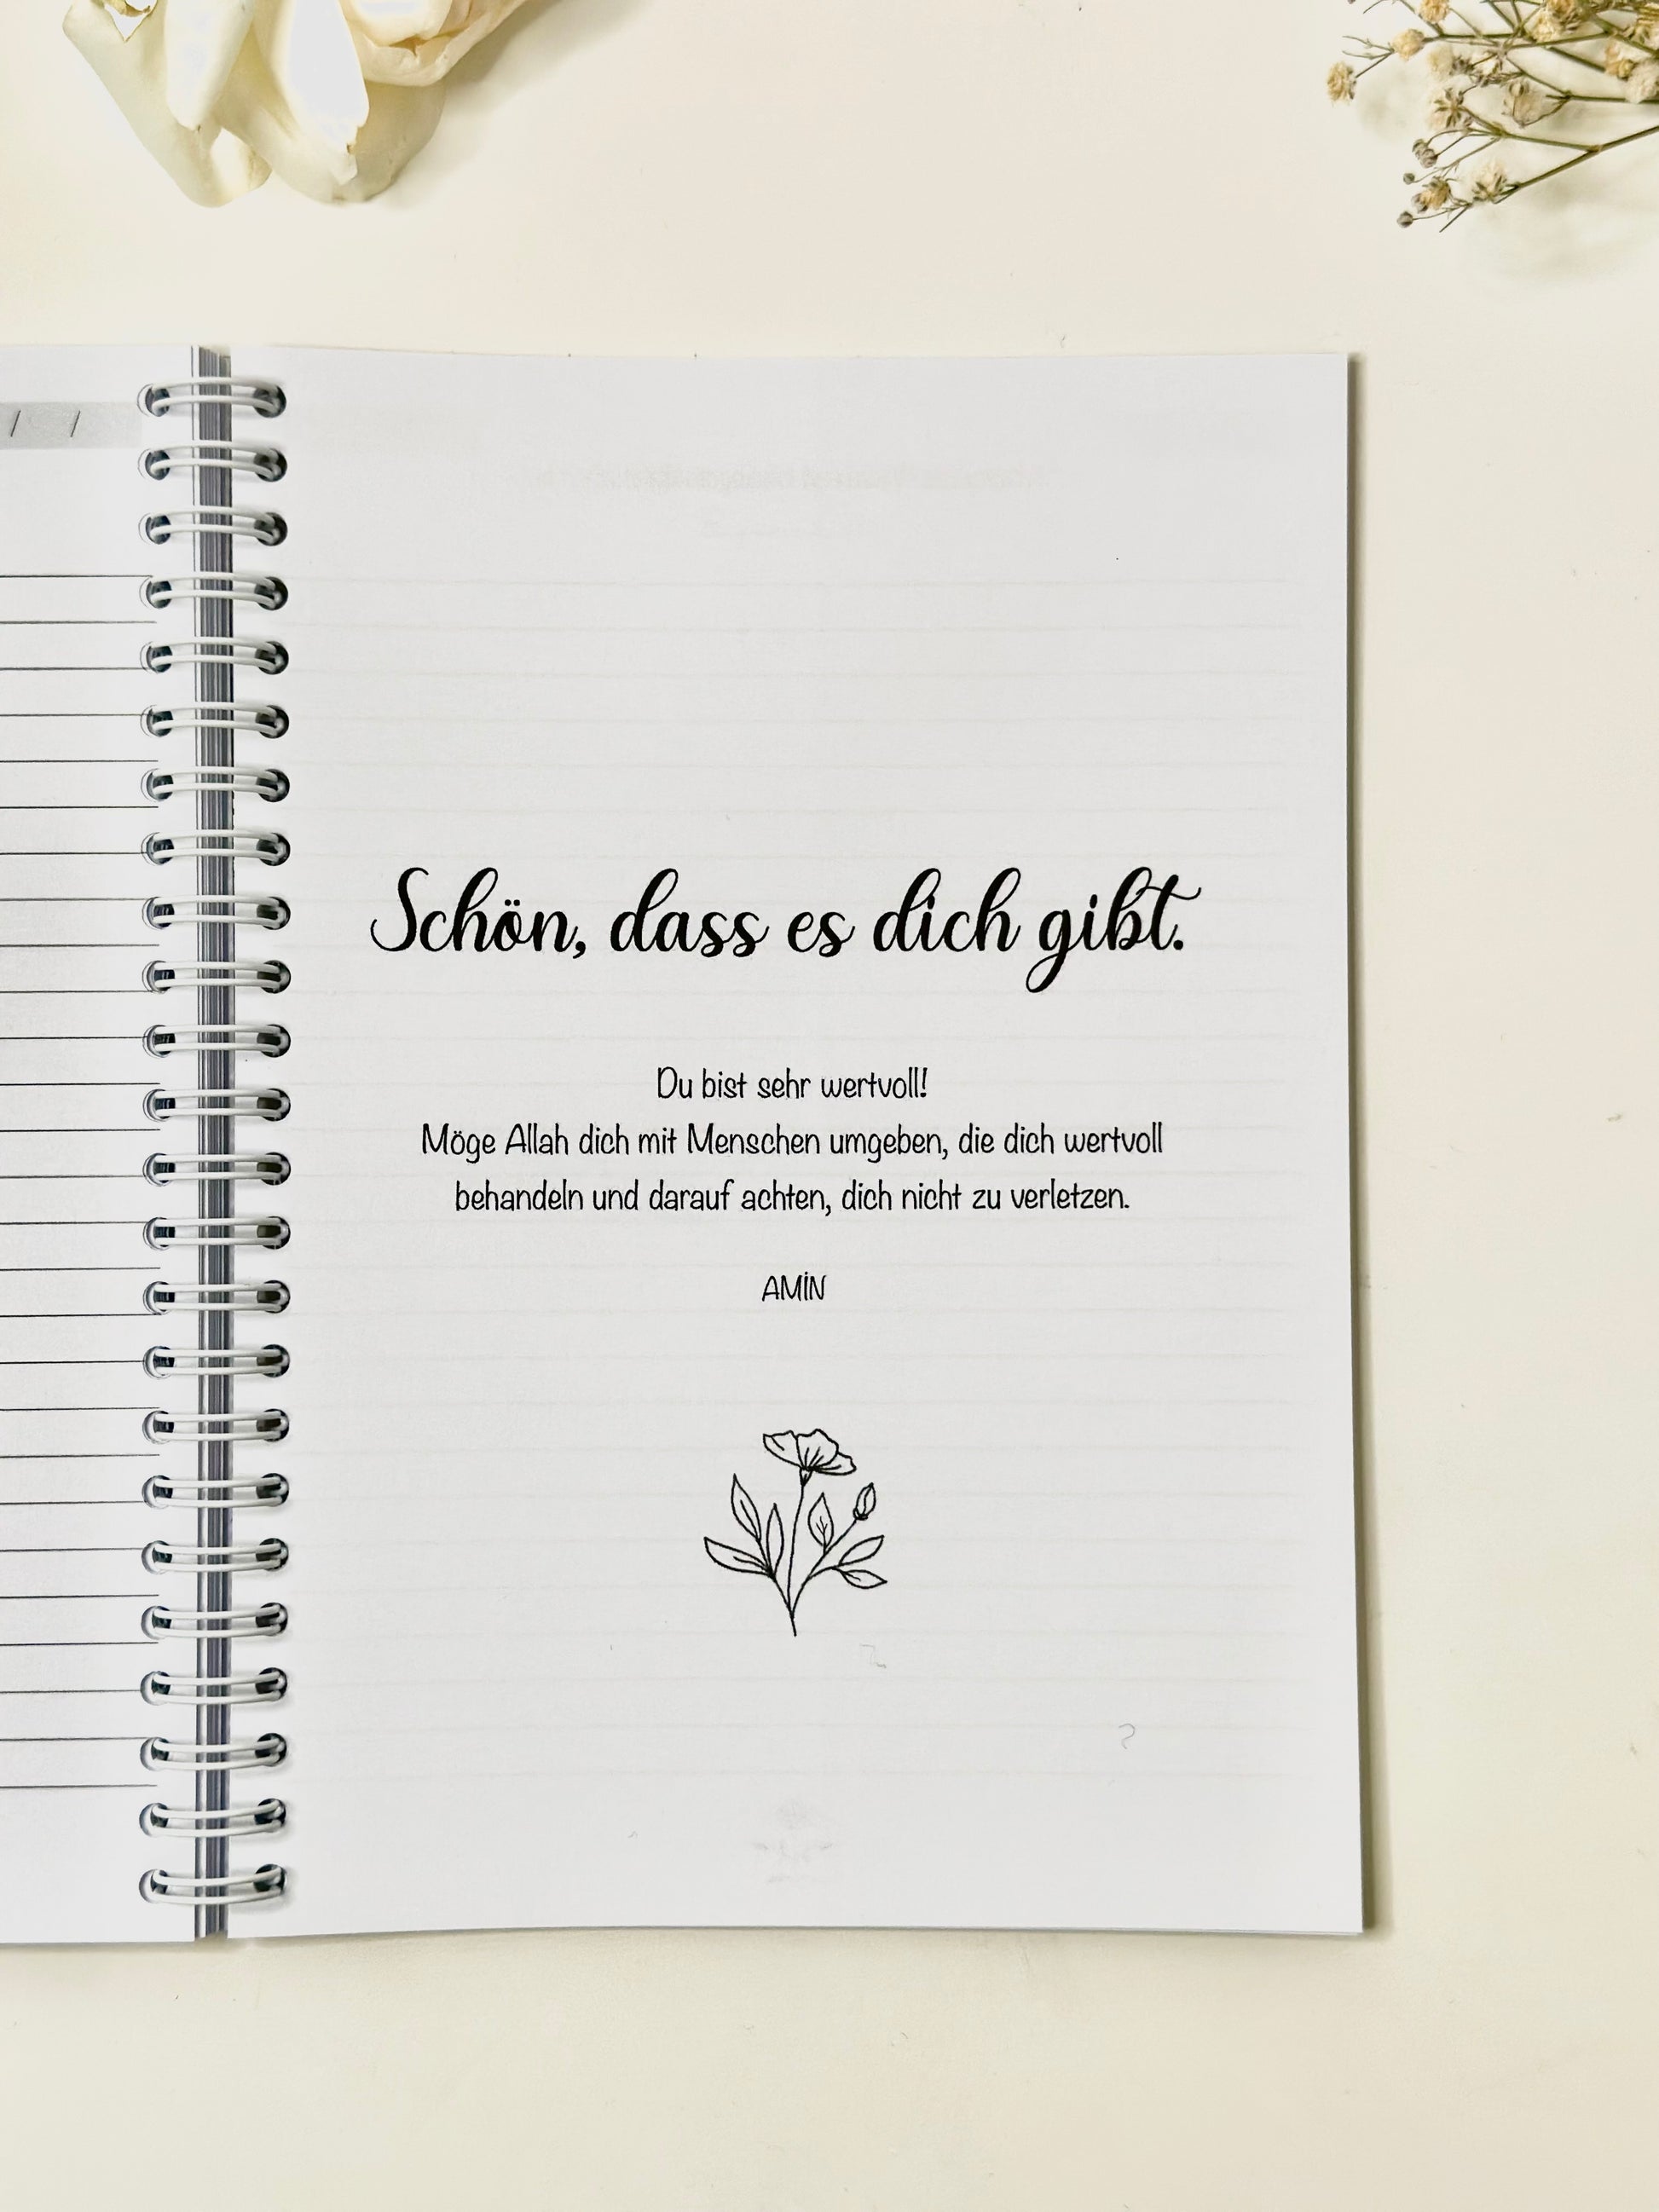 / /
Schön, dass es dich gibt.
Du bist sehr wertvoll!
Möge Allah dich mit Menschen umgeben, die dich wertvoll
behandeln und darauf achten, dich nicht zu verletzen.
AMİN